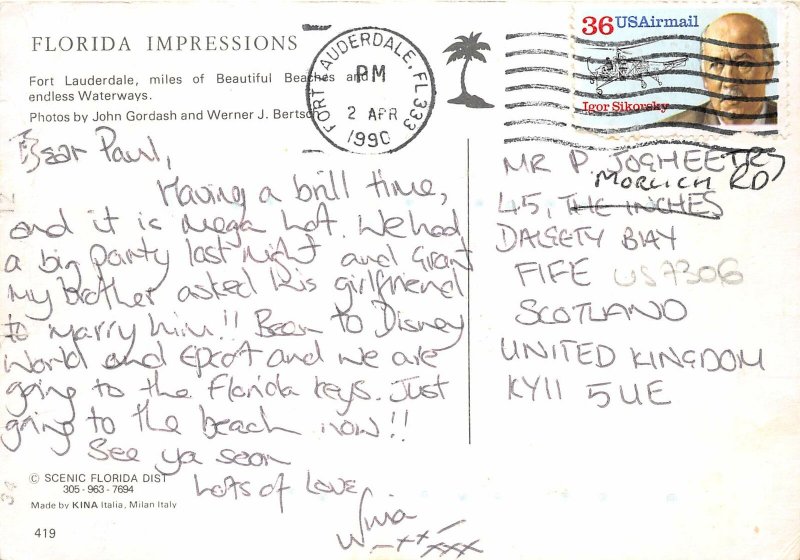 FLORIDA IMPRESSIONS
Fort Lauderdale, miles of Beautiful Beaches and
endless Waterways.
Photos by John Gordash and Werner J. Bertsch
FORT LAUDERDALE, FL 333
PM
2 APR
1990
36 USAirmail
Igor Sikorsky
Dear Paul,
Having a brill time,
and it is mega hot. We had
a big party last night and Grant
my brother asked his girlfriend
to marry him!! Been to Disney
World and Epcot and we are
going to the Florida Keys. Just
going to the beach now!!
See ya soon
Lots of Love
MR P.
MORLICH RD
45, THE INCHES
DALGETY BAY
FIFE US7306
SCOTLAND
UNITED KINGDOM
KY11 5UE
© SCENIC FLORIDA DIST
305-963-7694
Made by KINA Italia, Milan Italy
419